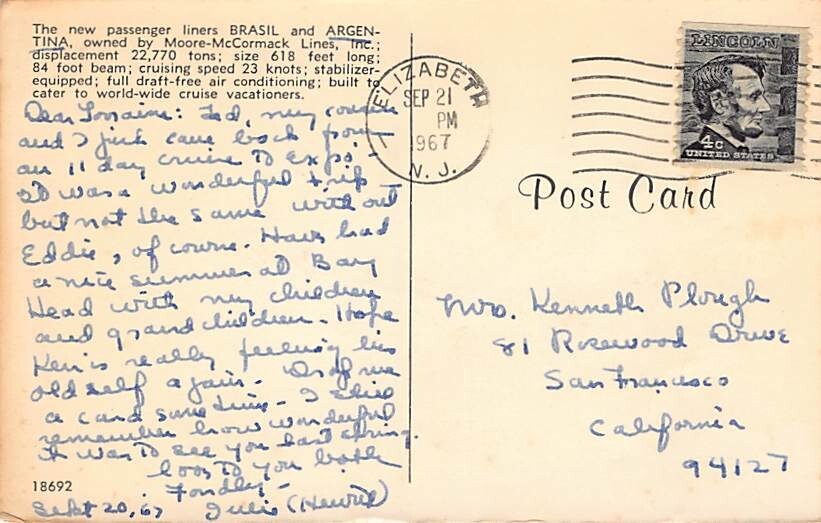 The new passenger liners BRASIL and ARGEN-
TINA, owned by Moore-McCormack Lines, Inc.;
displacement 22,770 tons; size 618 feet long;
84 foot beam; cruising speed 23 knots; stabilizer-
equipped; full draft-free air conditioning; built to
cater to world-wide cruise vacationers.
Dear Lorraine: Ted, my cousin
and I just came back from
an 11 day cruise to Expo -
It was a wonderful trip
but not the same with out
Eddie, of course. Have had
a nice summer at Bay
Head with my children
and grandchildren - Hope
Ken is really feeling his
old self again - Drop me
a card some time - I still
remember how wonderful
it was to see you last spring.
love to you both
Fondly -
Sept 20, 67 Julie
18692
ELIZABETH
SEP 21
PM
1967
N. J.
LINCOLN
4c
UNITED STATES
Post Card
Mrs. Kenneth Plough
81 Rosewood Drive
San Francisco
California
94127